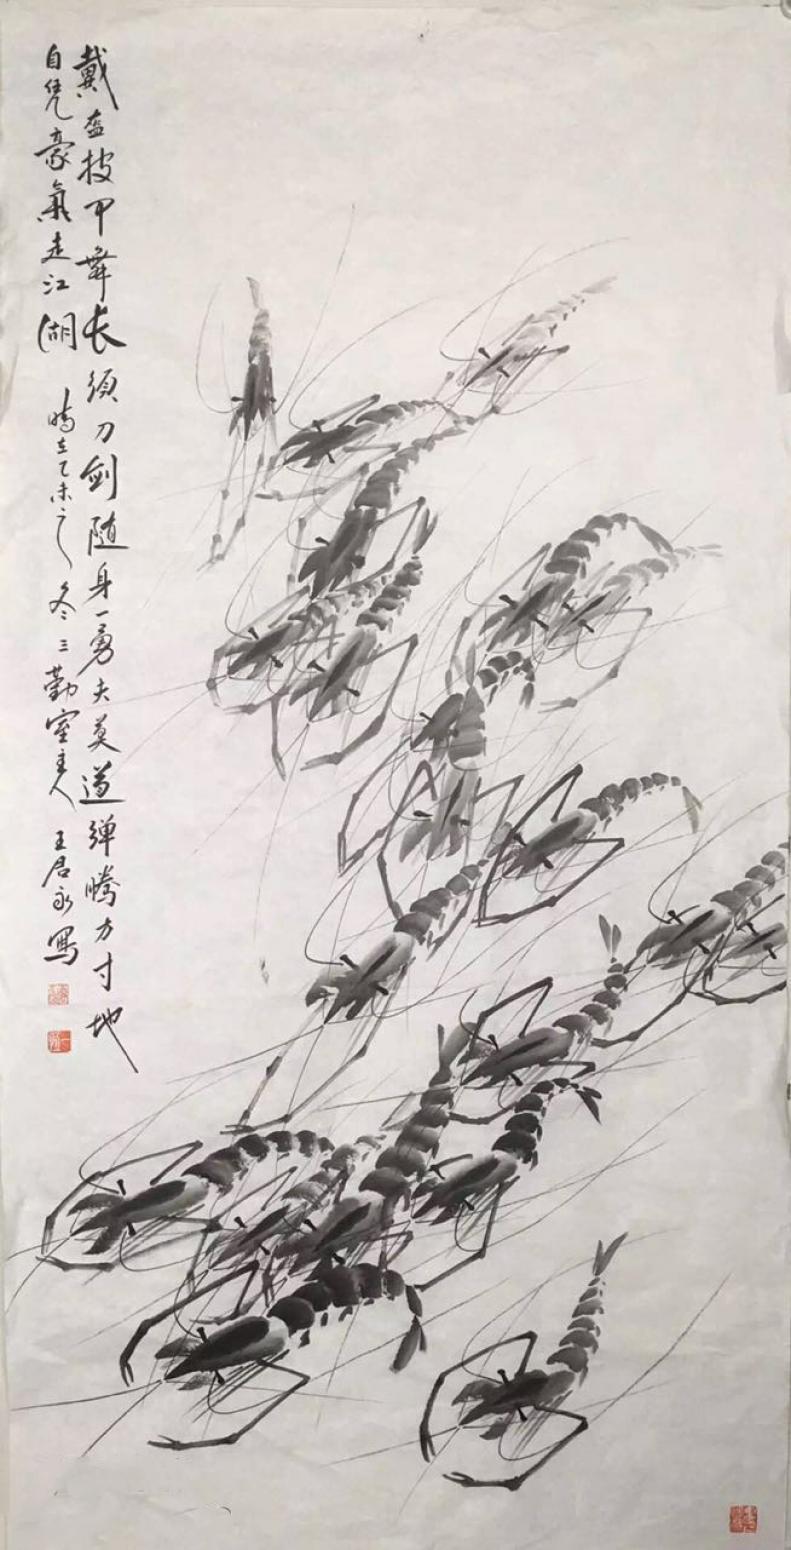 戴盔披甲舞长须刀剑随身一勇夫莫道弹腾方寸地
自凭豪氣走江湖 時在乙未之冬三勤室主人 王君永寫